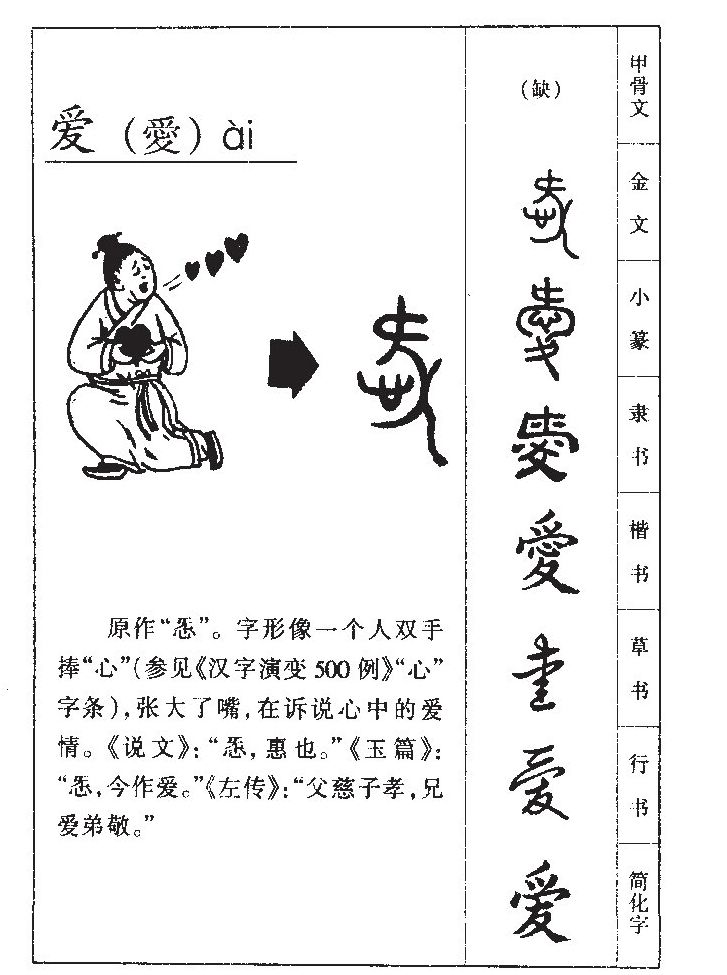 爱（愛）ài
原作“㤅”。字形像一个人双手
捧“心”(参见《汉字演变 500 例》“心”
字条),张大了嘴,在诉说心中的爱
情。《说文》:“㤅,惠也。”《玉篇》:
“㤅,今作爱。”《左传》:“父慈子孝,兄
爱弟敬。”
（缺）
愛
愛
愛
爱
爱
甲骨文
金文
小篆
隶书
楷书
草书
行书
简化字